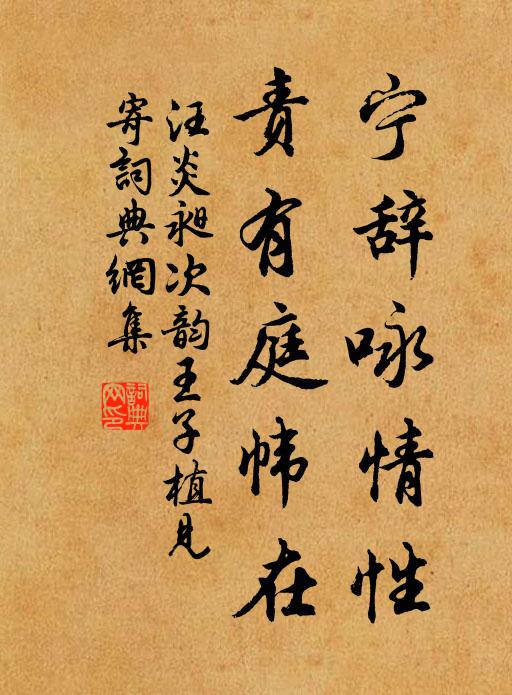 宁辞咏情性
责有庭帏在
汪炎昶次韵王子植见
寄词典网集
词典网印